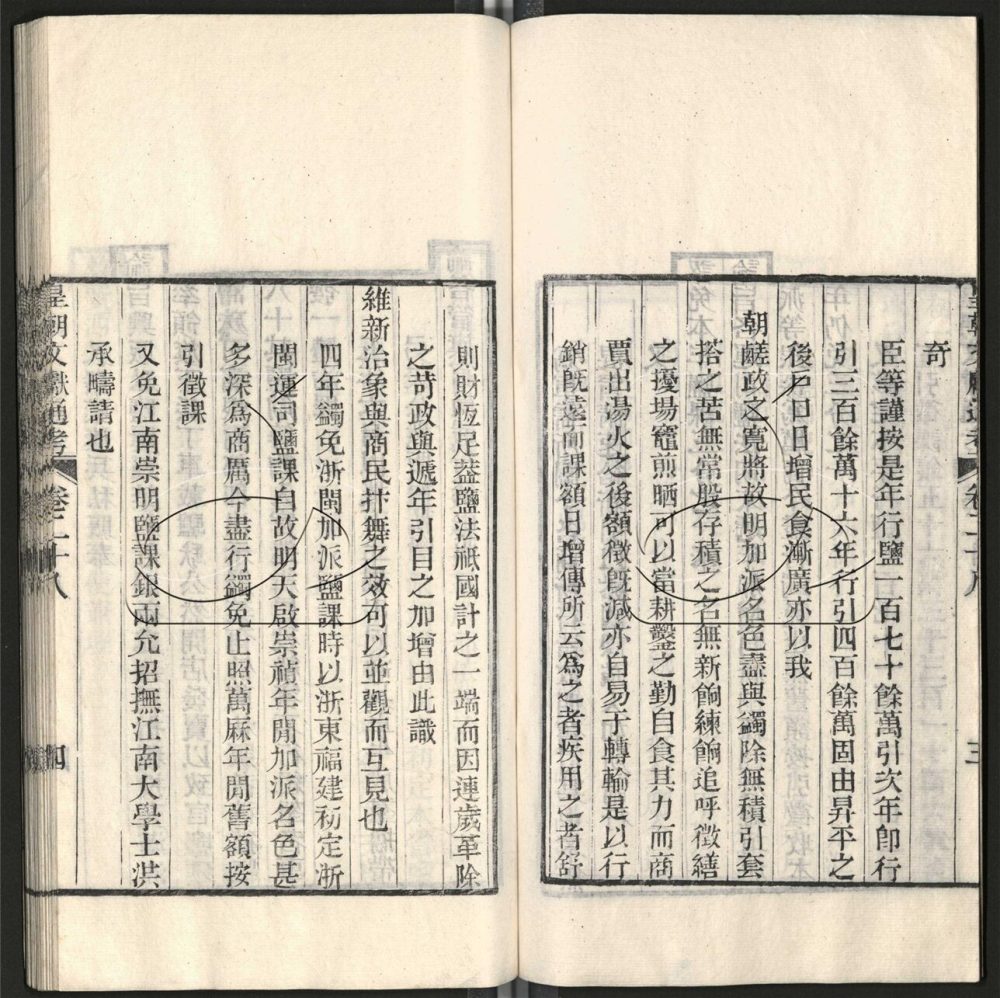 奇
臣等謹按是年行鹽一百七十餘萬引次年卽行
引三百餘萬十六年行引四百餘萬固由昇平之
後戸口日增民食漸廣亦以我
朝鹺政之寬將故明加派名色盡與蠲除無積引套
搭之苦無常股存積之名無新餉練餉追呼徵繕
之擾場竈煎晒可以當耕鑿之勤自食其力而商
賈出湯火之後額徵旣減亦自易于轉輸是以行
銷旣遠而課額日增傳所云爲之者疾用之者舒
三
則財恆足葢鹽法祇國計之一端而因連歲革除
之苛政與遞年引目之加增由此識
維新治象與商民抃舞之效可以並觀而互見也
四年蠲免浙閩加派鹽課時以浙東福建初定浙
閩運司鹽課自故明天啟崇禎年閒加派名色甚
多深爲商厲今盡行蠲免止照萬厤年閒舊額按
引徵課
又免江南崇明鹽課銀兩允招撫江南大學士洪
承疇請也
皇朝文獻通考 卷二十八 四